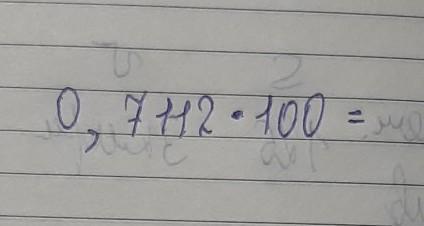 0,7112·100=